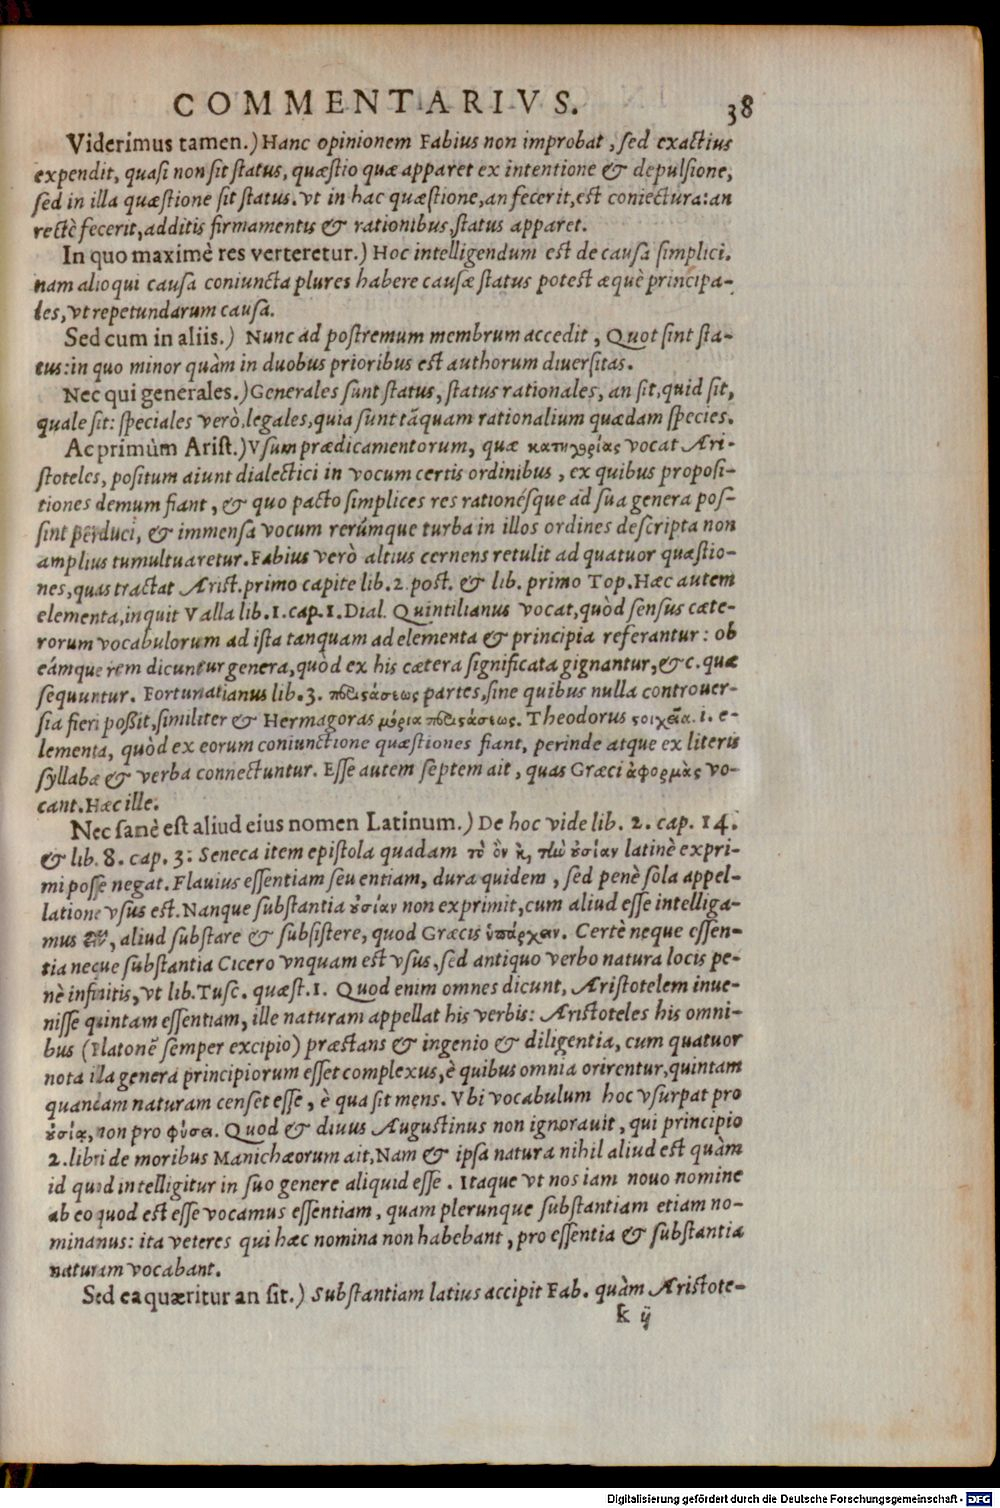 COMMENTARIVS. 38
Viderimus tamen.) Hanc opinionem Fabius non improbat, sed exactius
expendit, quasi non sit status, quæstio quæ apparet ex intentione & depulsione,
sed in illa quæstione sit status. vt in hac quæstione, an fecerit, est coniectura: an
rectè fecerit, additis firmamentis & rationibus, status apparet.
In quo maximè res verteretur.) Hoc intelligendum est de causa simplici.
nam alioqui causa coniuncta plures habere causæ status potest æquè principa-
les, vt repetundarum causa.
Sed cum in aliis.) Nunc ad postremum membrum accedit, Quot sint sta-
tus: in quo minor quàm in duobus prioribus est authorum diuersitas.
Nec qui generales.) Generales sunt status, status rationales, an sit, quid sit,
quale sit: speciales verò, legales, quia sunt tãquam rationalium quædam species.
Ac primùm Arist.) Vsum prædicamentorum, quæ κατηγορίας vocat Ari-
stoteles, positum aiunt dialectici in vocum certis ordinibus, ex quibus proposi-
tiones demum fiant, & quo pacto simplices res rationésque ad sua genera pos-
sint perduci, & immensa vocum rerúmque turba in illos ordines descripta non
amplius tumultuaretur. Fabius verò altius cernens retulit ad quatuor quæstio-
nes, quas tractat Arist. primo capite lib. 2. post. & lib. primo Top. Hæc autem
elementa, inquit Valla lib. 1. cap. 1. Dial. Quintilianus vocat, quòd sensus cæte-
rorum vocabulorum ad ista tanquam ad elementa & principia referantur: ob
eámque rem dicuntur genera, quòd ex his cætera significata gignantur, &c. quæ
sequuntur. Fortunatianus lib. 3. περιστάσεως partes, sine quibus nulla controuer-
sia fieri poßit, similiter & Hermagoras μόρια περιστάσεως. Theodorus στοιχεῖα. i. e-
lementa, quòd ex eorum coniunctione quæstiones fiant, perinde atque ex literis
syllabæ & verba connectuntur. Esse autem septem ait, quas Græci ἀφορμὰς vo-
cant. Hæc ille.
Nec sanè est aliud eius nomen Latinum.) De hoc vide lib. 2. cap. 14.
& lib. 8. cap. 3: Seneca item epistola quadam τὸ ὂν κ, τὴν οὐσίαν latinè expri-
mi posse negat. Flauius essentiam seu entiam, dura quidem, sed penè sola appel-
latione vsus est. Nanque substantia οὐσίαν non exprimit, cum aliud esse intelliga-
mus , aliud substare & subsistere, quod Græcis ὑπάρχειν. Certè neque essen-
tia neque substantia Cicero vnquam est vsus, sed antiquo verbo natura locis pe-
nè infinitis, vt lib. Tusc. quæst. 1. Quod enim omnes dicunt, Aristotelem inue-
nisse quintam essentiam, ille naturam appellat his verbis: Aristoteles his omni-
bus (Platonẽ semper excipio) præstans & ingenio & diligentia, cum quatuor
nota illa genera principiorum esset complexus, è quibus omnia orirentur, quintam
quandam naturam censet esse, è qua sit mens. Vbi vocabulum hoc vsurpat pro
οὐσίᾳ, non pro φύσει. Quod & diuus Augustinus non ignorauit, qui principio
2. libri de moribus Manichæorum ait, Nam & ipsa natura nihil aliud est quàm
id quod intelligitur in suo genere aliquid esse. Itaque vt nos iam nouo nomine
ab eo quod est esse vocamus essentiam, quam plerunque substantiam etiam no-
minanus: ita veteres qui hæc nomina non habebant, pro essentia & substantia
naturam vocabant.
Sed ea quæritur an sit.) Substantiam latius accipit Fab. quàm Aristote-
k ij
Digitalisierung gefördert durch die Deutsche Forschungsgemeinschaft - DFG